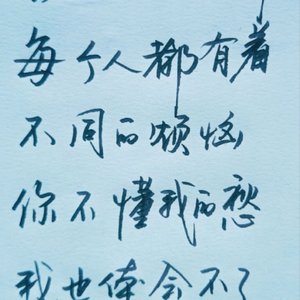 每个人都有着
不同的烦恼
你不懂我的愁
我也体会不了